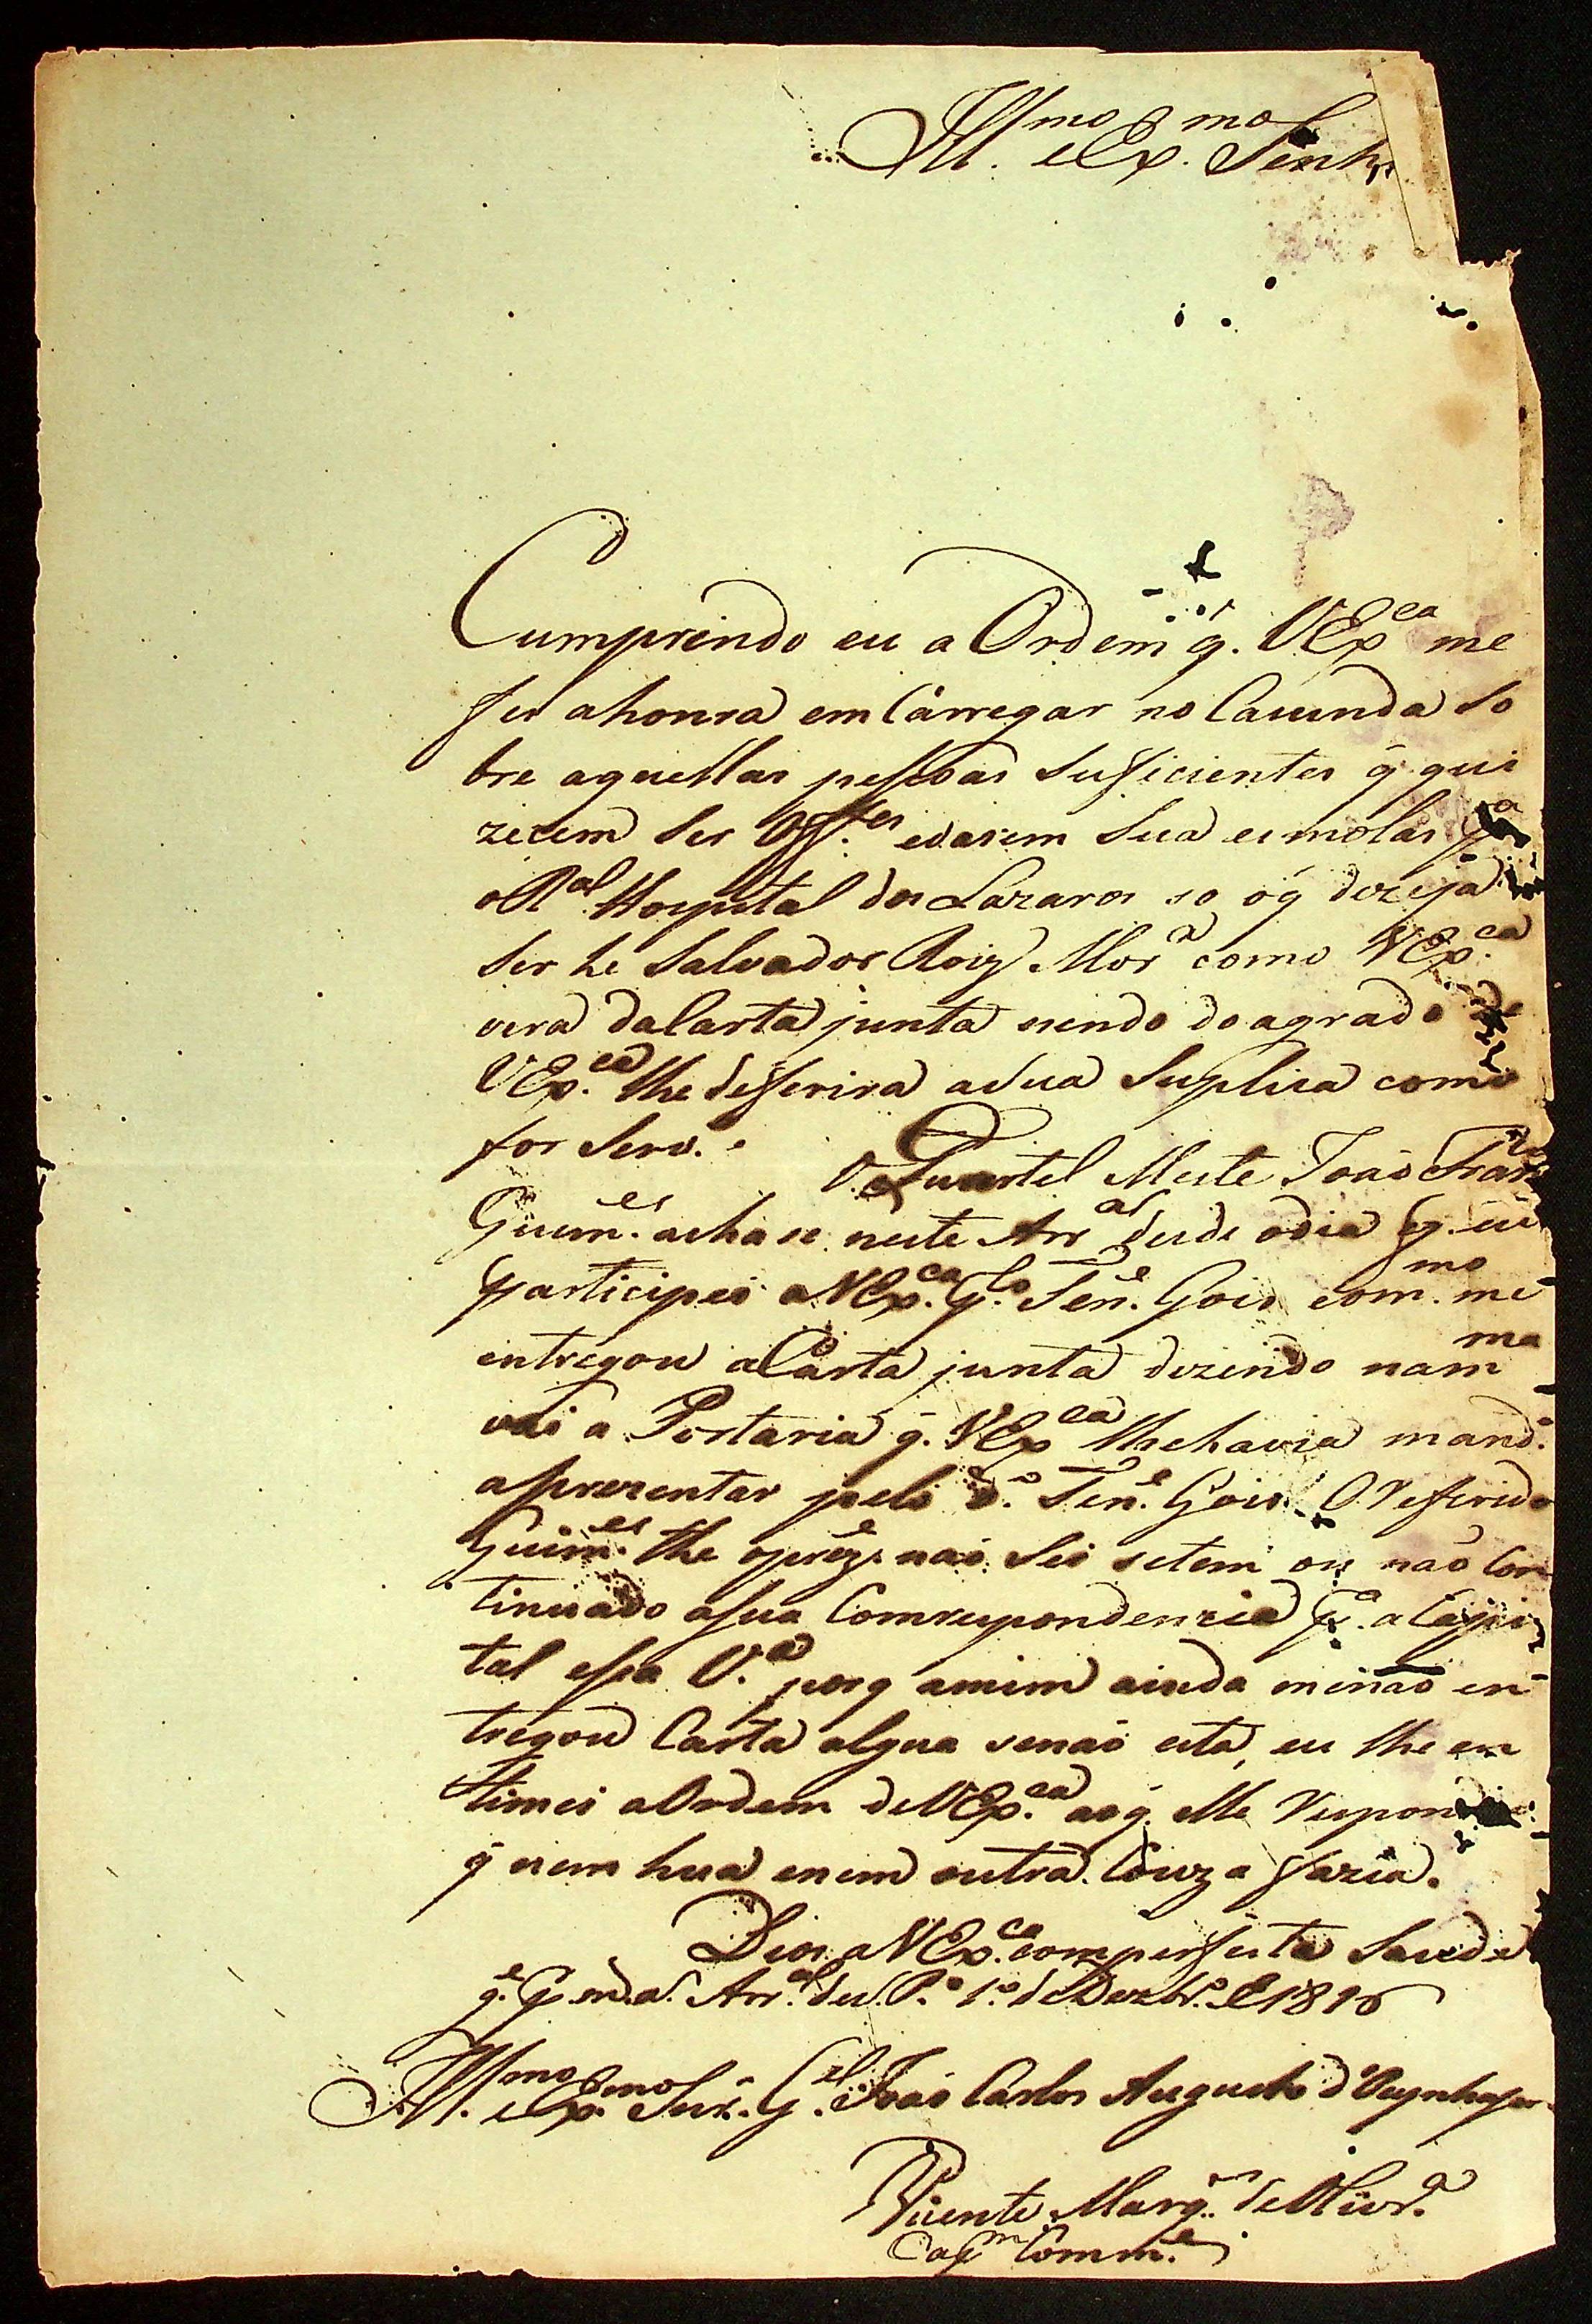 Ill.mo e Ex.mo Senhr
Cumprindo eu a Ordem q. VEx.ca me
fes a honra em Carregar no Caiunda So
bre aquellas pessoas Suficientes q̃ qui
zecem Ser Off.es edarem Sua esmolas p.a
o R.al Hospital dos Lazaros so óq̃ dezeja
Ser he Salvador Roiz Mor.a como VEx.ca
vera daCarta junta sendo do agrado de
VEx.ca lhe defferira a Sua Suplica como
for Serv.o
O Quartel Meste João Fran.co
Guim.es acha se neste Arr.al desde odia q. eu
participei a VEx.ca q. o Ten.e Gois com.mo me
entregou a Carta junta dizendo nam
vai a Portaria q̃. VEx.ca lhe havia mand.o
aprezentar pelo d.o Ten.e Gois. O Referido
Guim.es lhe não Sei setem ou não Con
tinuado asua Comrespondenzia p.a a Capi
tal essa V.a porq amim ainda menão en
tregou Carta algua senão esta, eu lhe en
timei aOrdem deVEx.ca aoq̃. elle Respondeo
q̃ nem hua enem outra Couza fazia.
Deos a VEx.ca com perfeita Saude
g.e Arr.al de S. P.o 1.o de Dezbr.o de 1816
Ill.mo e Ex.mo Snr. G.el João Carlos Augusto d'Oeynhasen
Vicente Marq.s de Olivr.a
Cap.m Comm.e